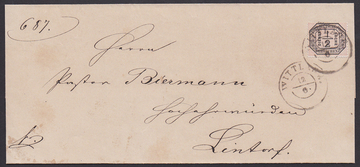 687.
Herrn
Pastor Biermann
Hochehrwürden
Lintorf.
1/2
WITTL